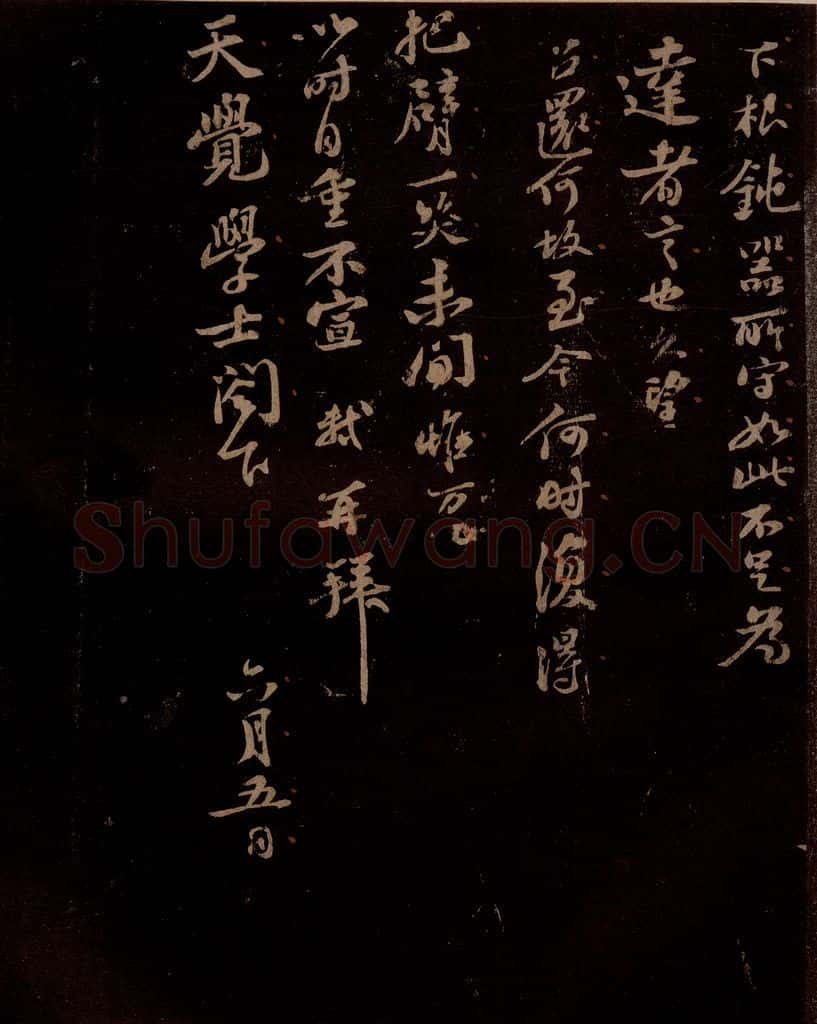 下根鈍器所守如此不足為
達者言也久望
召還何故至今何時復得
把臂一笑未間惟萬萬
以時自重不宣 軾再拜
天覺學士閣下
六月五日
Shufawang.CN